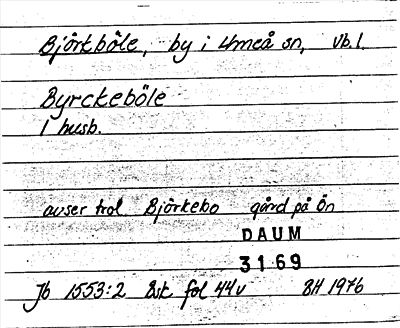 Björkböle, by i Umeå sn, Vb. l.
Byrckeböle
1 husb.
avser trol Björkebo gård på Ön
DAUM
3169
Jb 1553:2 åsk fol 44v BH 1976